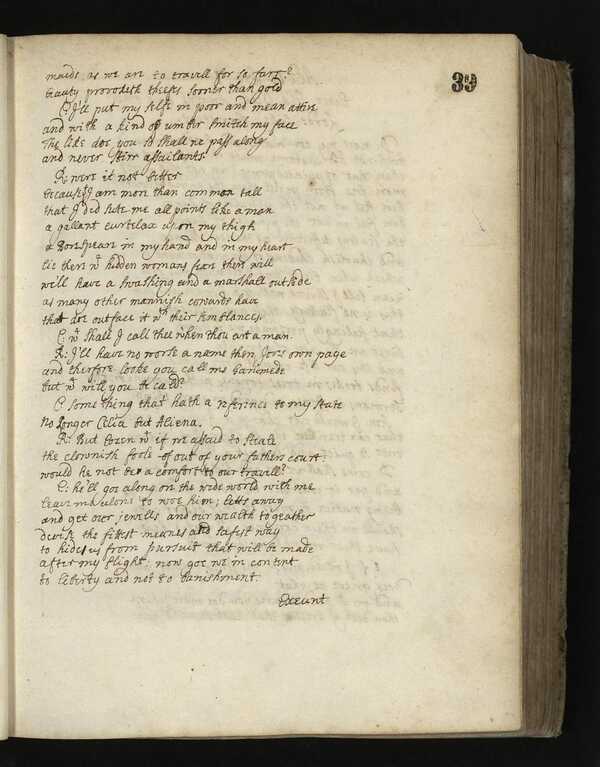 39
maids as we are to travell for so farr?
beauty provoketh theefs sooner than gold
C: I'll put my selfe in poor and mean attire
and with a kind of umber smitch my face
The like doe you so shall we pass along
and never stirr assailants
R: were it not better
because I am more than common tall
that I did sute me all points like a man
a gallant curtelax upon my thigh
a Borespear in my hand and in my heart
lie there wt hidden womans fear there will
we'll have a swashing and a marshall outside
as many other mannish cowards have
that doe outface it wth their semblances.
C: wt shall I call thee when thou art a man.
R: I'll have no worse a name then Joves own page
and therfore looke you call me Ganimede
but wt will you be calld?
C: something that hath a reference to my state
No Longer Celia but Aliena.
R: But Cozen wt if we assaid to steale
the clownish foole of out of your fathers court:
would he not be a comfort to our travell?
C: he'll goe along on the wide world with me
leave me alone to woe him; letts away
and get our jewells and our wealth togeather
devise the fittest meanes and safest way
to hide us from pursuit that will be made
after my flight: now goe we in content
to liberty and not to banishment.
Exeunt